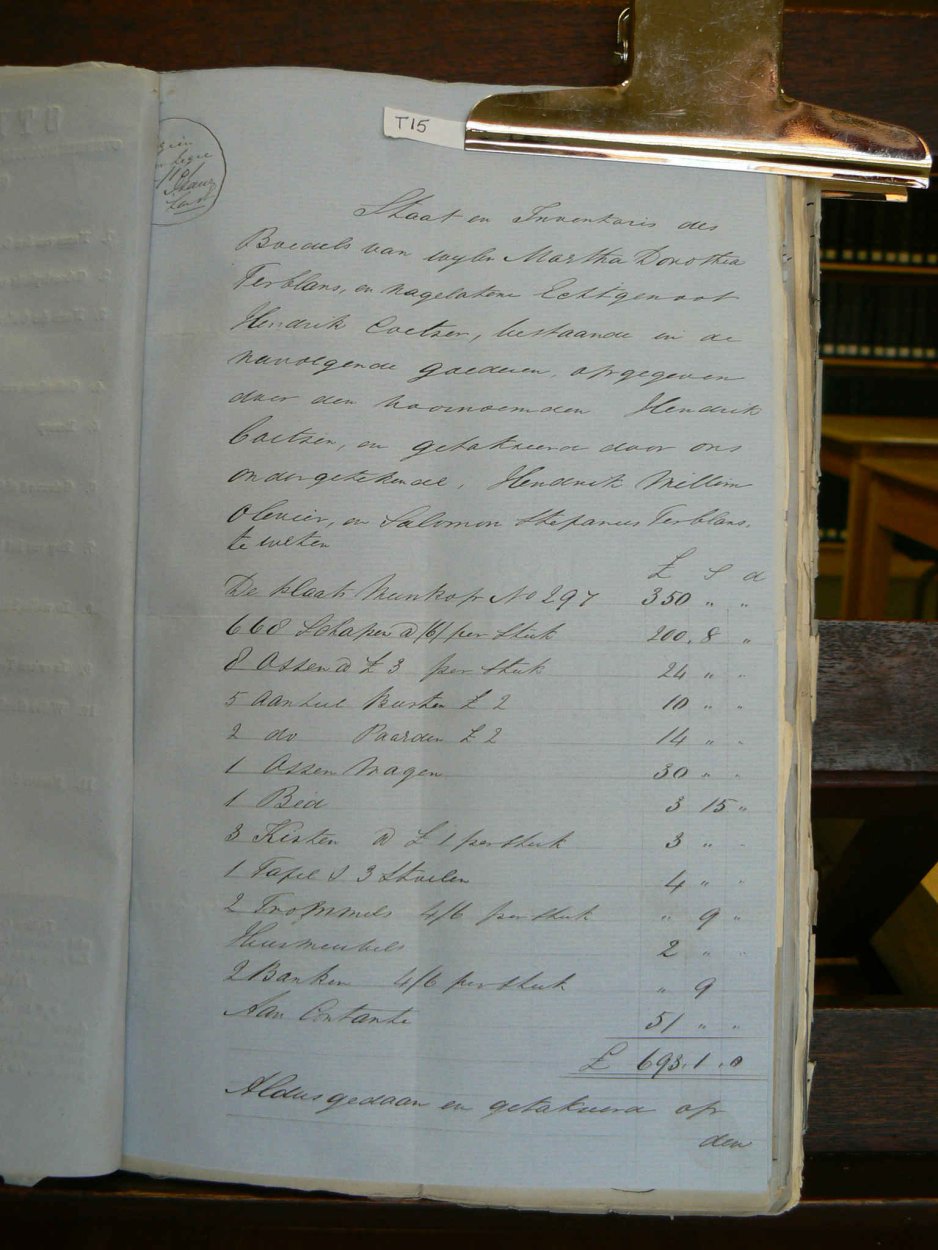 T15
Staat en Inventaris des
Boedels van wylen Martha Dorothea
Terblans, en nagelatene Echtgenoot
Hendrik Coetser, bestaande in de
navolgende goederen, opgegeven
door den voornoemden Hendrik
Coetsen, en getakseerd door ons
ondergetekende, Hendrik Willem
Olevier, en Salomon Stefanus Terblans,
te weten
£ S d
De plaats Leeuwkop No 297 350 " "
668 Schapen @ /6/ per stuk 200 . 8 "
8 Ossen @ £ 3 per stuk 24 " "
5 aanteel Beesten £ 2 10 " "
2 do Paarden £ 2 14 " "
1 Ossen Wagen 30 " "
1 Bed 3 15 "
3 Kisten @ £ 1 per stuk 3 " "
1 Tafel & 3 Stoelen 4 " "
2 Trommels 4/6 per stuk " 9 "
Huismeubels 2 " "
2 Banken 4/6 per stuk " 9
Aan Contante 51 " "
£ 693 . 1 . 0
Aldus gedaan en getakseerd op
den